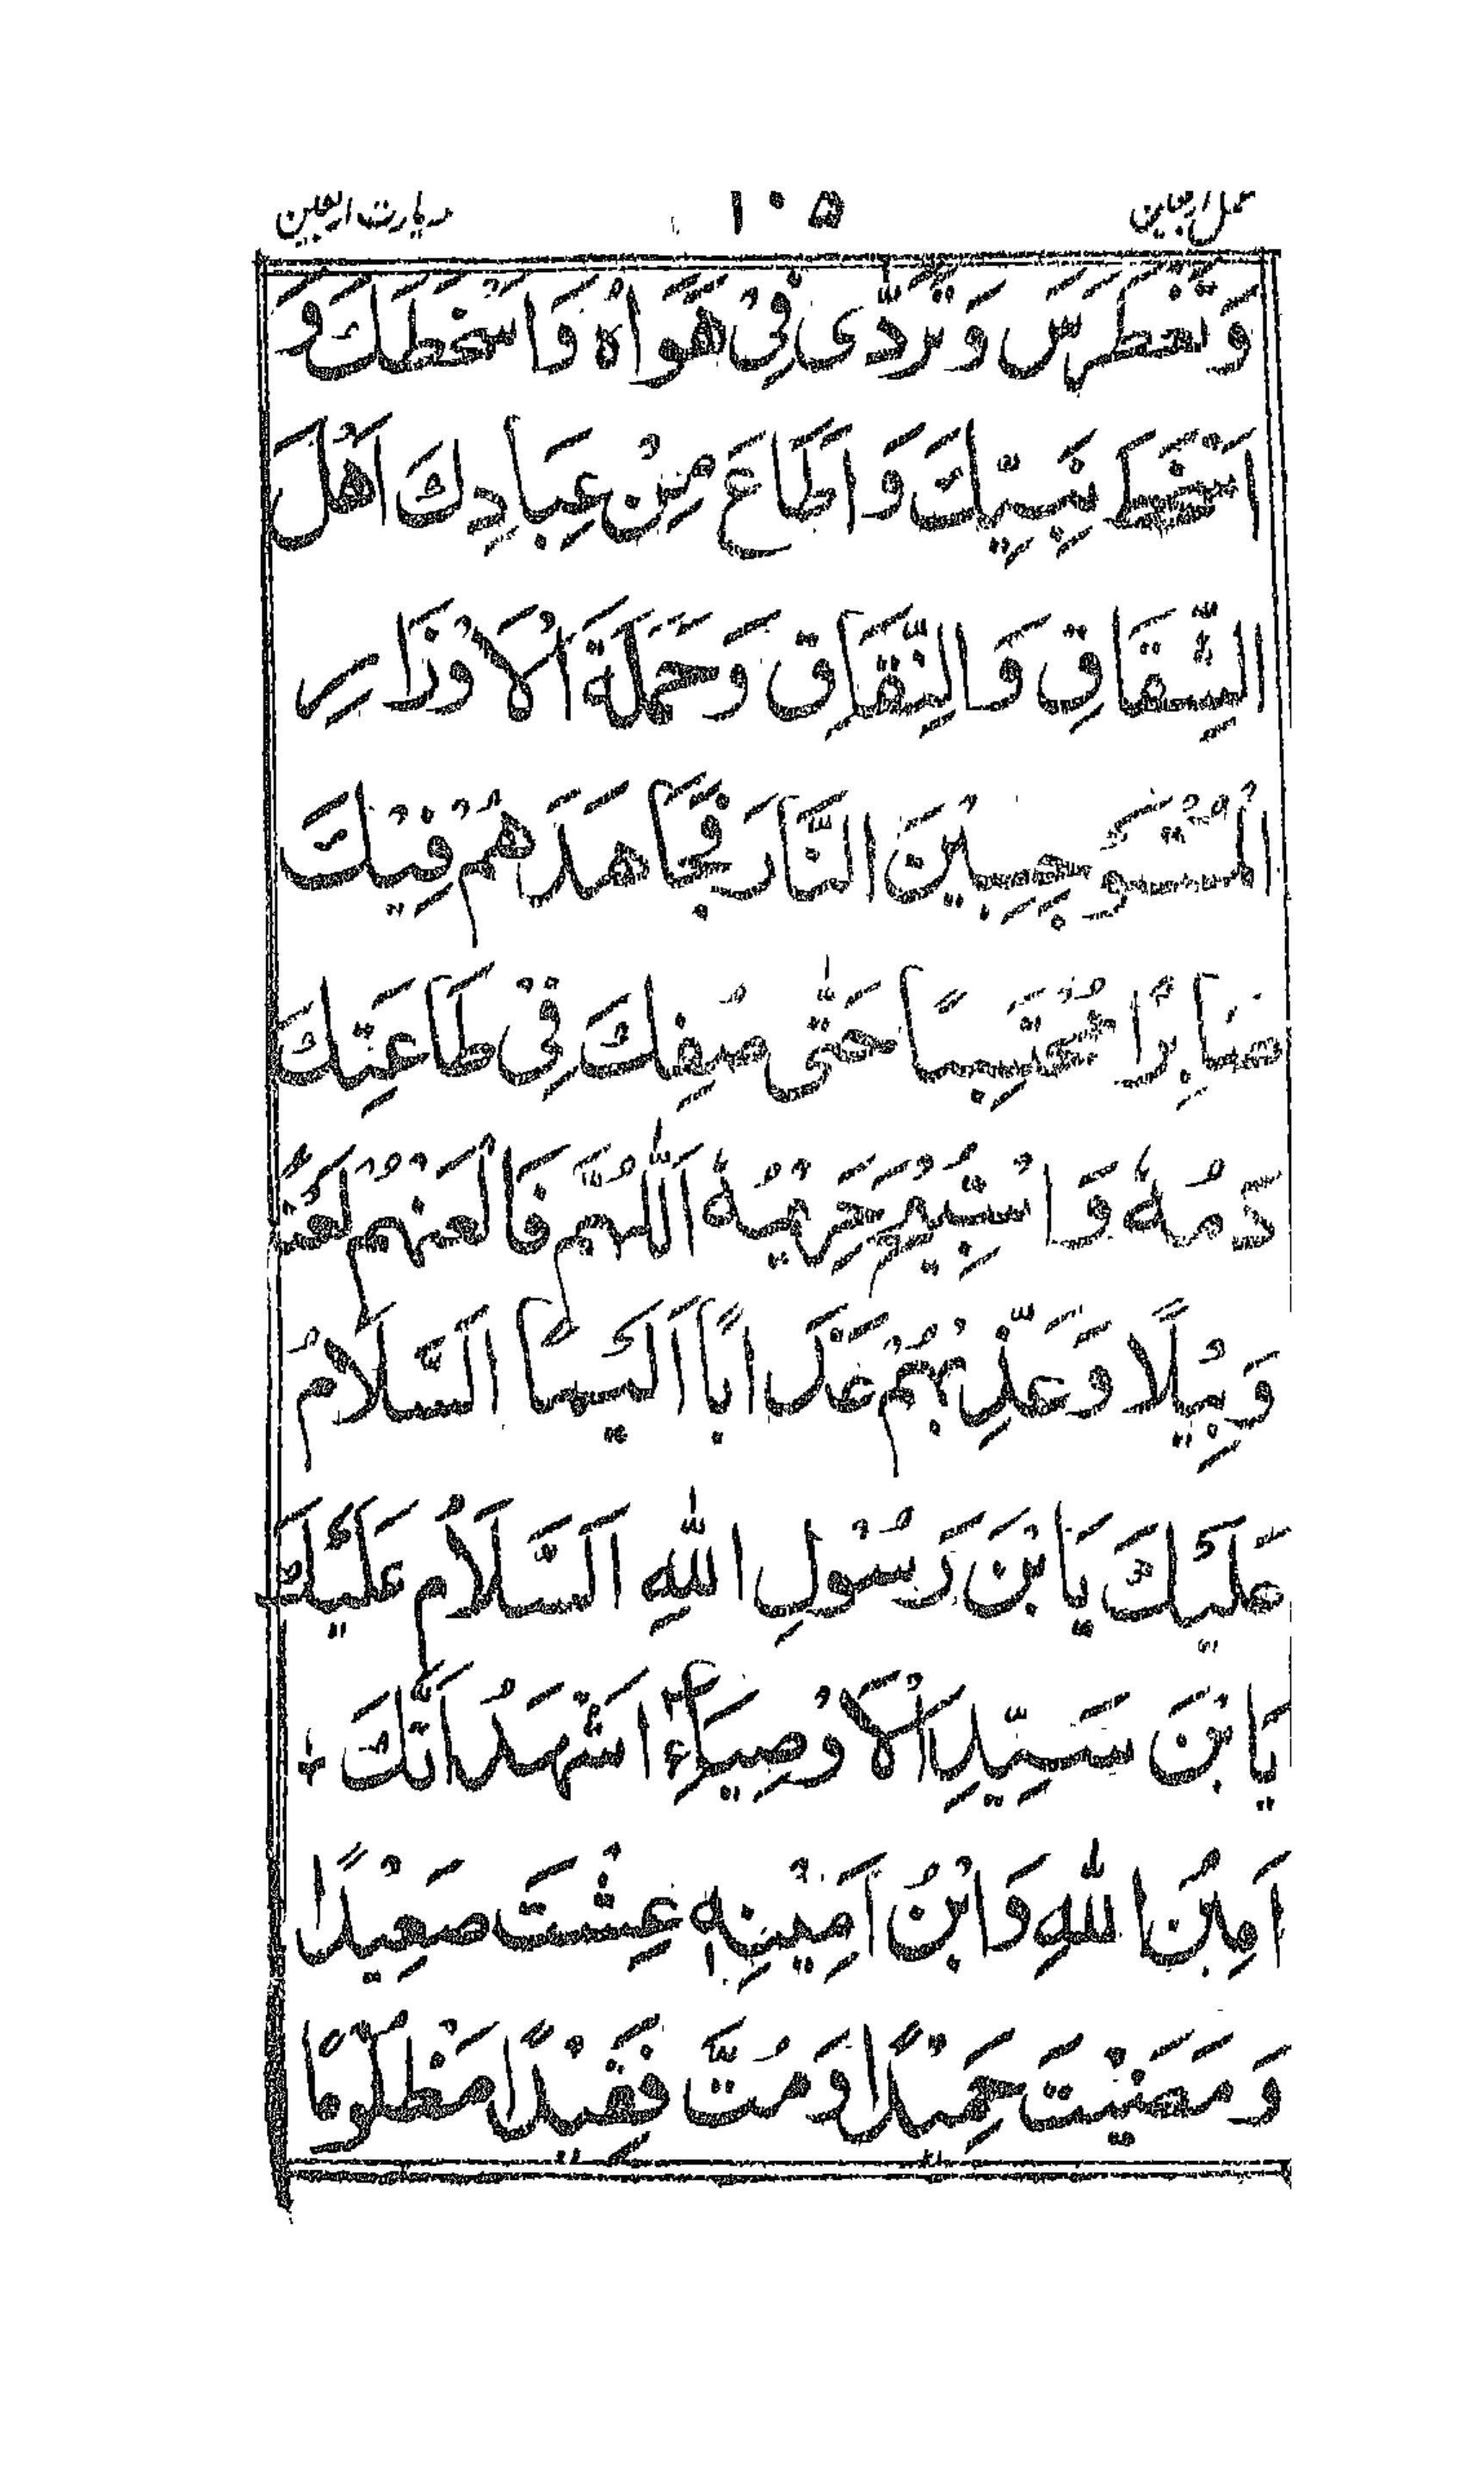 عمل اربعین ۱۰۵ زیارت اربعین
وَتَغَطْرَسَ وَتَرَدّٰى فِیْ هَوَاهُ وَاَسْخَطَكَ وَ
اَسْخَطَ نَبِیَّكَ وَاَطَاعَ مِنْ عِبَادِكَ اَهْلَ
الشِّقَاقِ وَالنِّفَاقِ وَحَمَلَةَ الْاَوْزَارِ
الْمُسْتَوْجِبِیْنَ النَّارَ فَجَاهَدَهُمْ فِیْكَ
صَابِرًا مُحْتَسِبًا حَتّٰى سُفِكَ فِیْ طَاعَتِكَ
دَمُهٗ وَاسْتُبِیْحَ حَرِیْمُهٗ اَللّٰهُمَّ فَالْعَنْهُمْ لَعْنًا
وَبِیْلًا وَعَذِّبْهُمْ عَذَابًا اَلِیْمًا اَلسَّلَامُ
عَلَیْكَ یَابْنَ رَسُوْلِ اللّٰهِ اَلسَّلَامُ عَلَیْكَ
یَابْنَ سَیِّدِ الْاَوْصِیَاءِ اَشْهَدُ اَنَّكَ
اَمِیْنُ اللّٰهِ وَابْنُ اَمِیْنِهٖ عِشْتَ سَعِیْدًا
وَمَضَیْتَ حَمِیْدًا وَمُتَّ فَقِیْدًا مَظْلُوْمًا